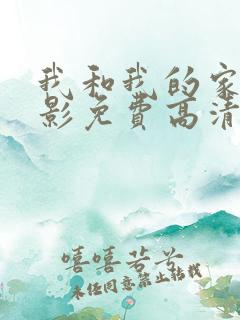 我和我的家
影免费高清
嘻嘻若兮
未经同意禁止转载